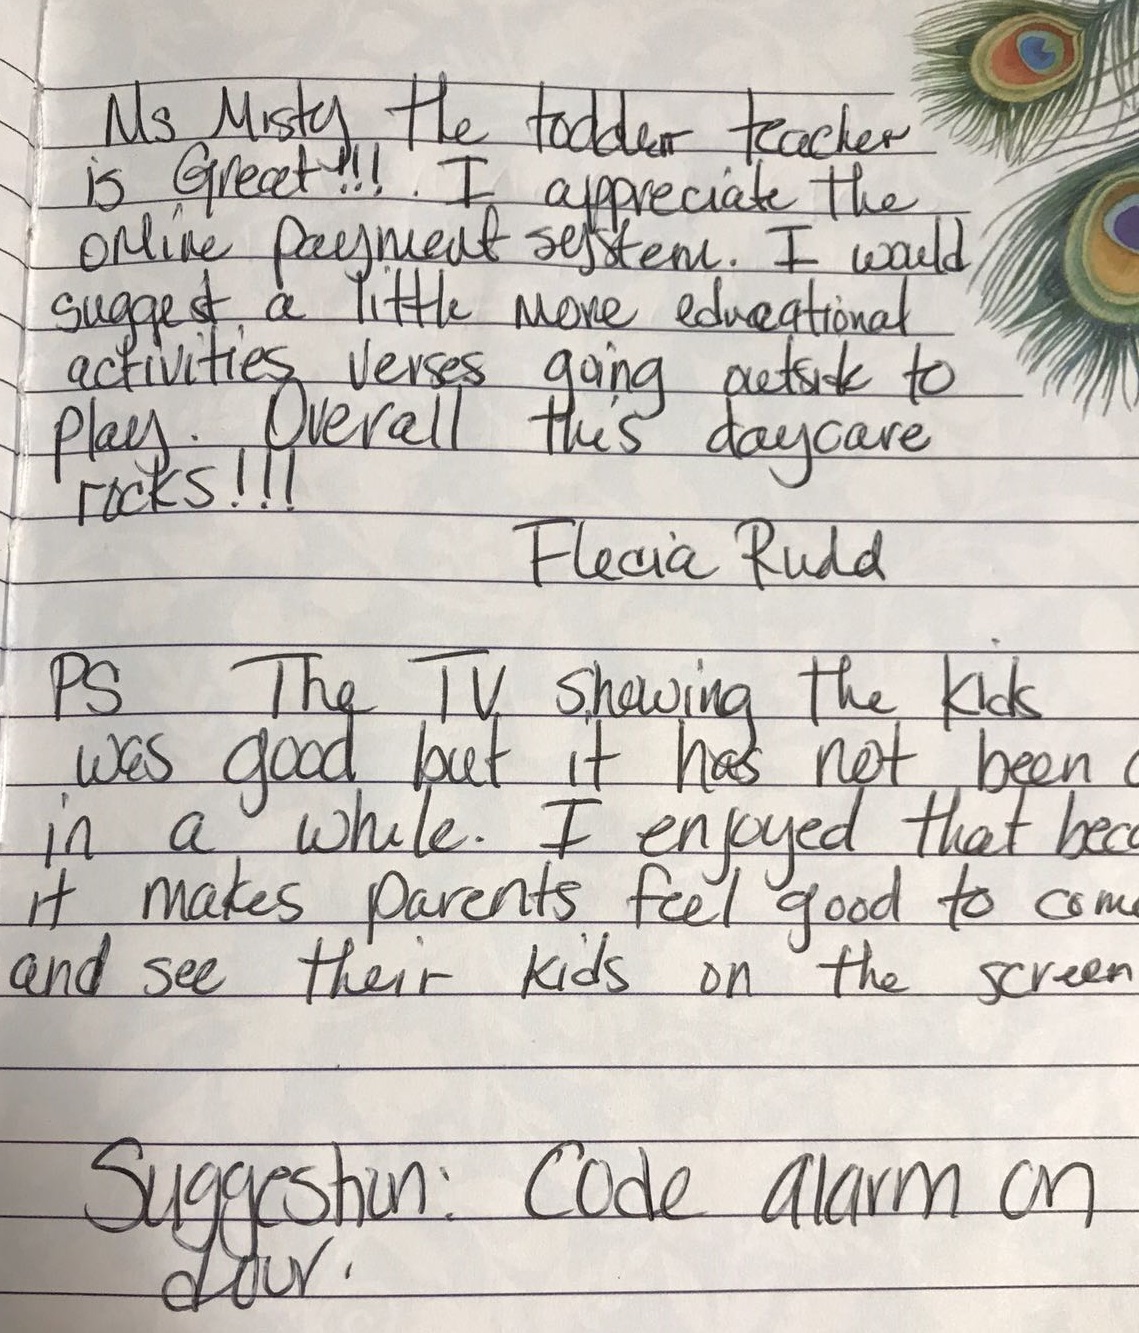 Ms Misty the toddler teacher
is Great!!! . I appreciate the
online payment system. I would
suggest a little more educational
activities verses going outside to
play. Overall this daycare
rocks!!!
Flecia Rudd
PS The TV showing the kids
was good but it has not been
in a while. I enjoyed that
it makes parents feel good to
and see their kids on the screen
Suggestion: Code alarm on
door.